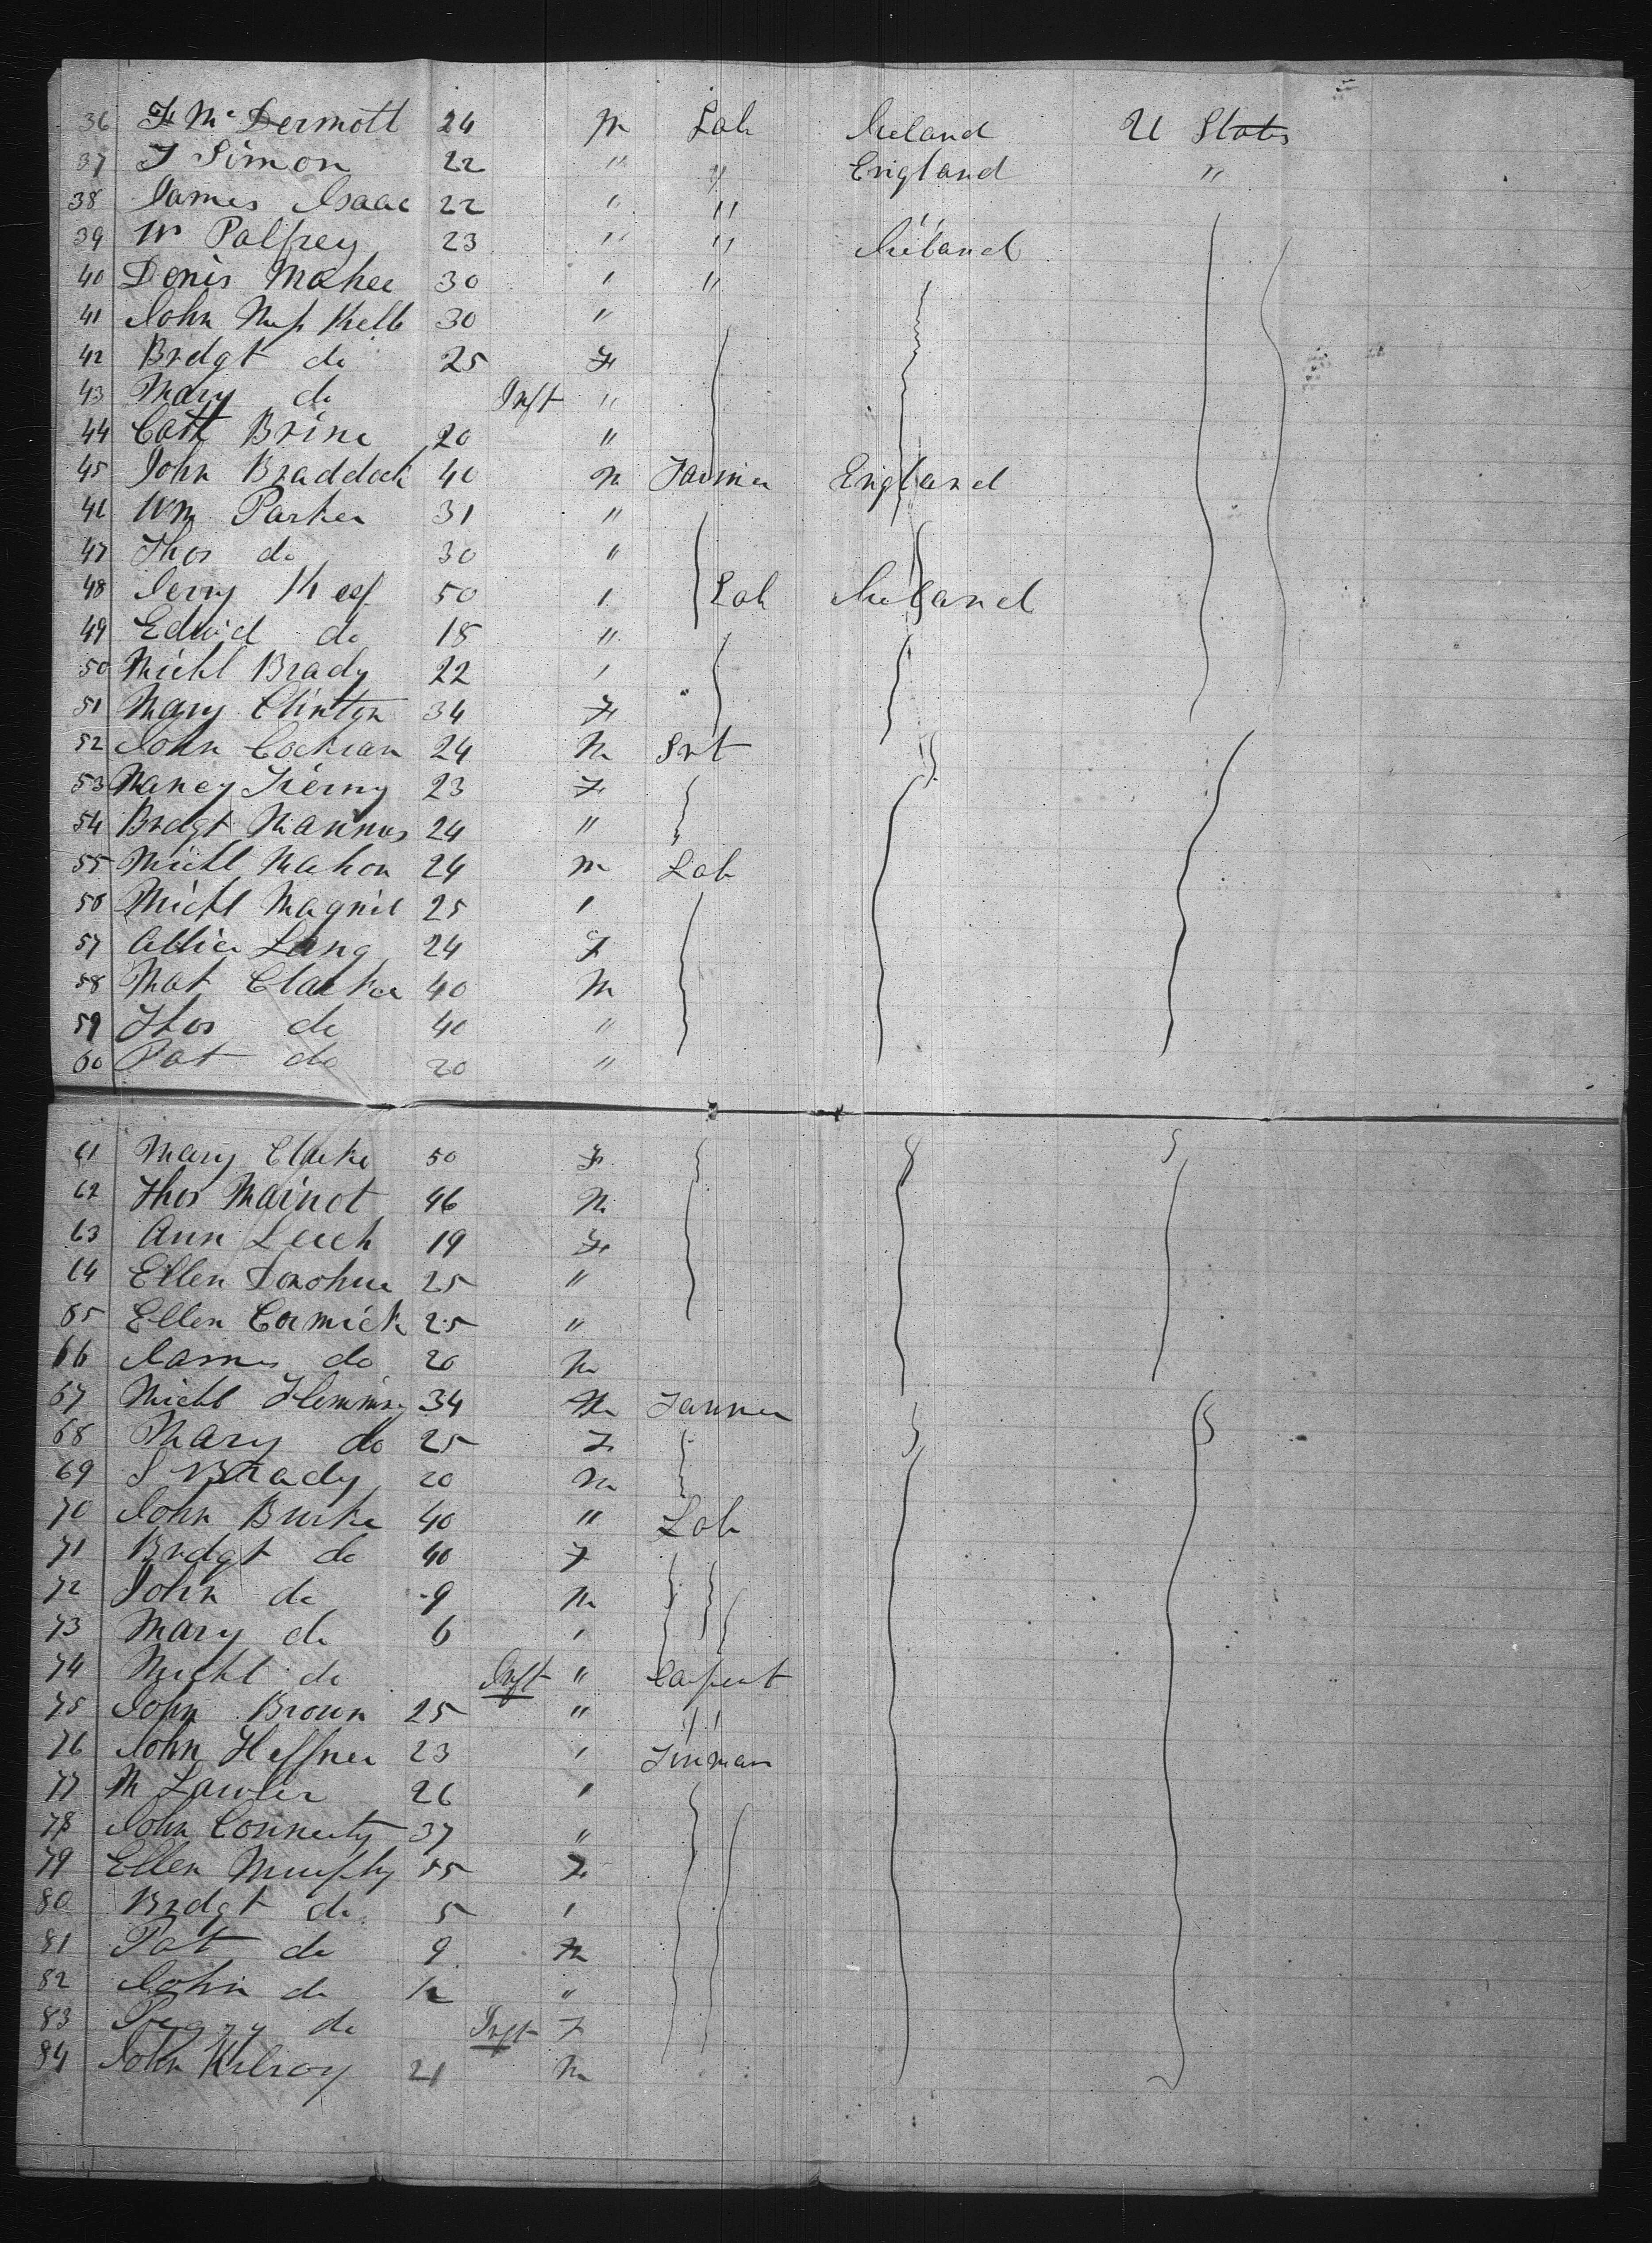 36 F McDermott 24 M Lab Ireland U States
37 J Simon 22 " " England "
38 James Isaac 22 " " "
39 Wm Palfrey 23 " " Ireland
40 Denis Maher 30 " "
41 John 30 "
42 Brdgt do 25 F
43 Mary do Inft "
44 Cath Brine 20 "
45 John Braddock 40 M Farmer England
46 Wm Parker 31 "
47 Thos do 30 "
48 Jerry 50 " Lab Ireland
49 Edwd do 18 "
50 Michl Brady 22 "
51 Mary Clinton 34 F
52 John Cochran 24 M Svt
53 Nancy Kierny 23 F
54 Brdgt Mannus 24 "
55 Michl Mahon 24 M Lab
56 Michl 25 "
57 Lang 24 F
58 Mat Clarke 40 M
59 Thos do 40 "
60 Pat do 20 "
61 Mary Clarke 50 F
62 Thos Mainot 46 M
63 Ann Leech 19 F
64 Ellen Donohue 25 "
65 Ellen Cormick 25 "
66 James do 20 M
67 Michl Fleming 34 M Farmer
68 Mary do 25 F
69 S Brady 20 M
70 John Burke 40 " Lab
71 Brdgt do 40 F
72 John do 9 M
73 Mary do 6 "
74 Michl do Inft " Carpent
75 John Brown 25 " "
76 John Heffner 23 " Tinman
77 M Lawler 26 "
78 John Connerty 37 "
79 Ellen Murphy 55 F
80 Brdgt do 5 "
81 Pat do 9 M
82 John do "
83 Peggy do Inft F
84 John Kilroy 21 M